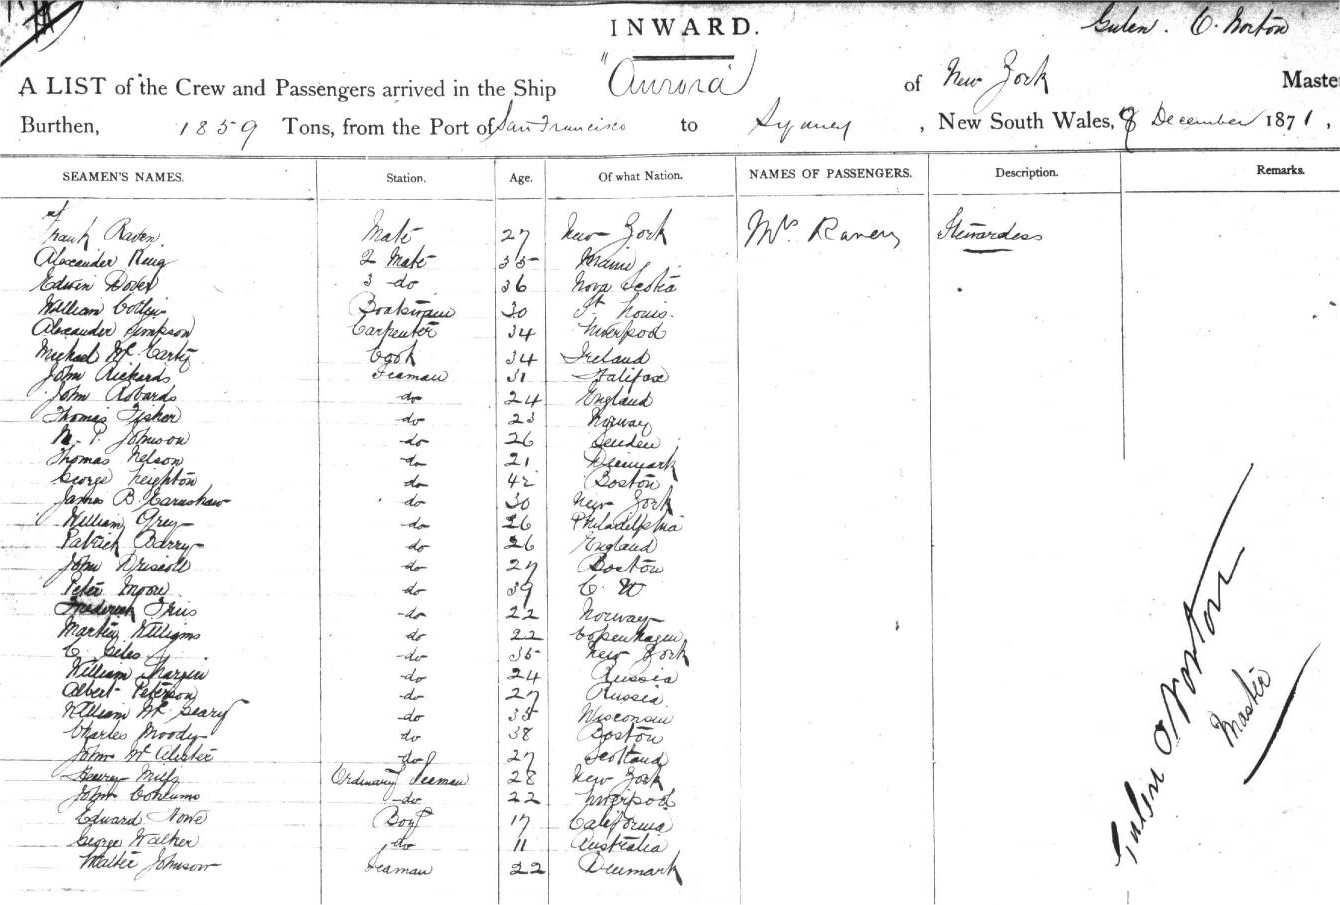 INWARD.
Gulen. C. Norton
A LIST of the Crew and Passengers arrived in the Ship "Aurora" of New York Maste
Burthen, 1859 Tons, from the Port of San Francisco to Sydney, New South Wales, 8 December 1871,
SEAMEN'S NAMES. Station. Age. Of what Nation. NAMES OF PASSENGERS. Description. Remarks.
Frank Raven Mate 27 New York Mrs. Raven Stewardess
Alexander Ring 2 Mate 35 Maine
Edwin 3 do 36 Nova Scotia
William Boatswain 30 St Louis.
Alexander Simpson Carpenter 34 Liverpool
Michael Mc Carty Cook 34 Ireland
John Rickards Seaman 31 Halifax
John Robards do 24 England
Thomas Fisher do 23 Norway
N. P. Johnson do 26 Sweden
Thomas Nelson do 21 Denmark
George Leighton do 42 Boston
James B Earnshaw do 30 New York
William Grey do 26 Philadelphia
Patrick Barry do 26 England
John Driscoll do 27 Boston
Peter Moore do 39
Frederick do 22 Norway
Martin Williams do 22 Copenhagen
C. Giles do 35 New York
William do 24 Russia
Albert Peterson do 27 Russia
William Mc Geary do 35 Wisconsin
Charles Moody do 38 Boston
John Mc Alister do 27 Scotland
Henry Mills Ordinary Seaman 28 New York
John do 22 Liverpool
Edward Boy 17 California
George Walker do 11 Australia
Walter Johnson Seaman 22 Denmark
Gulen C Norton
Master